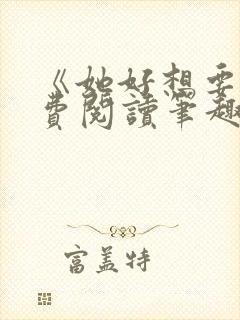 《她好想要
費閱讀筆趣
富蓋特